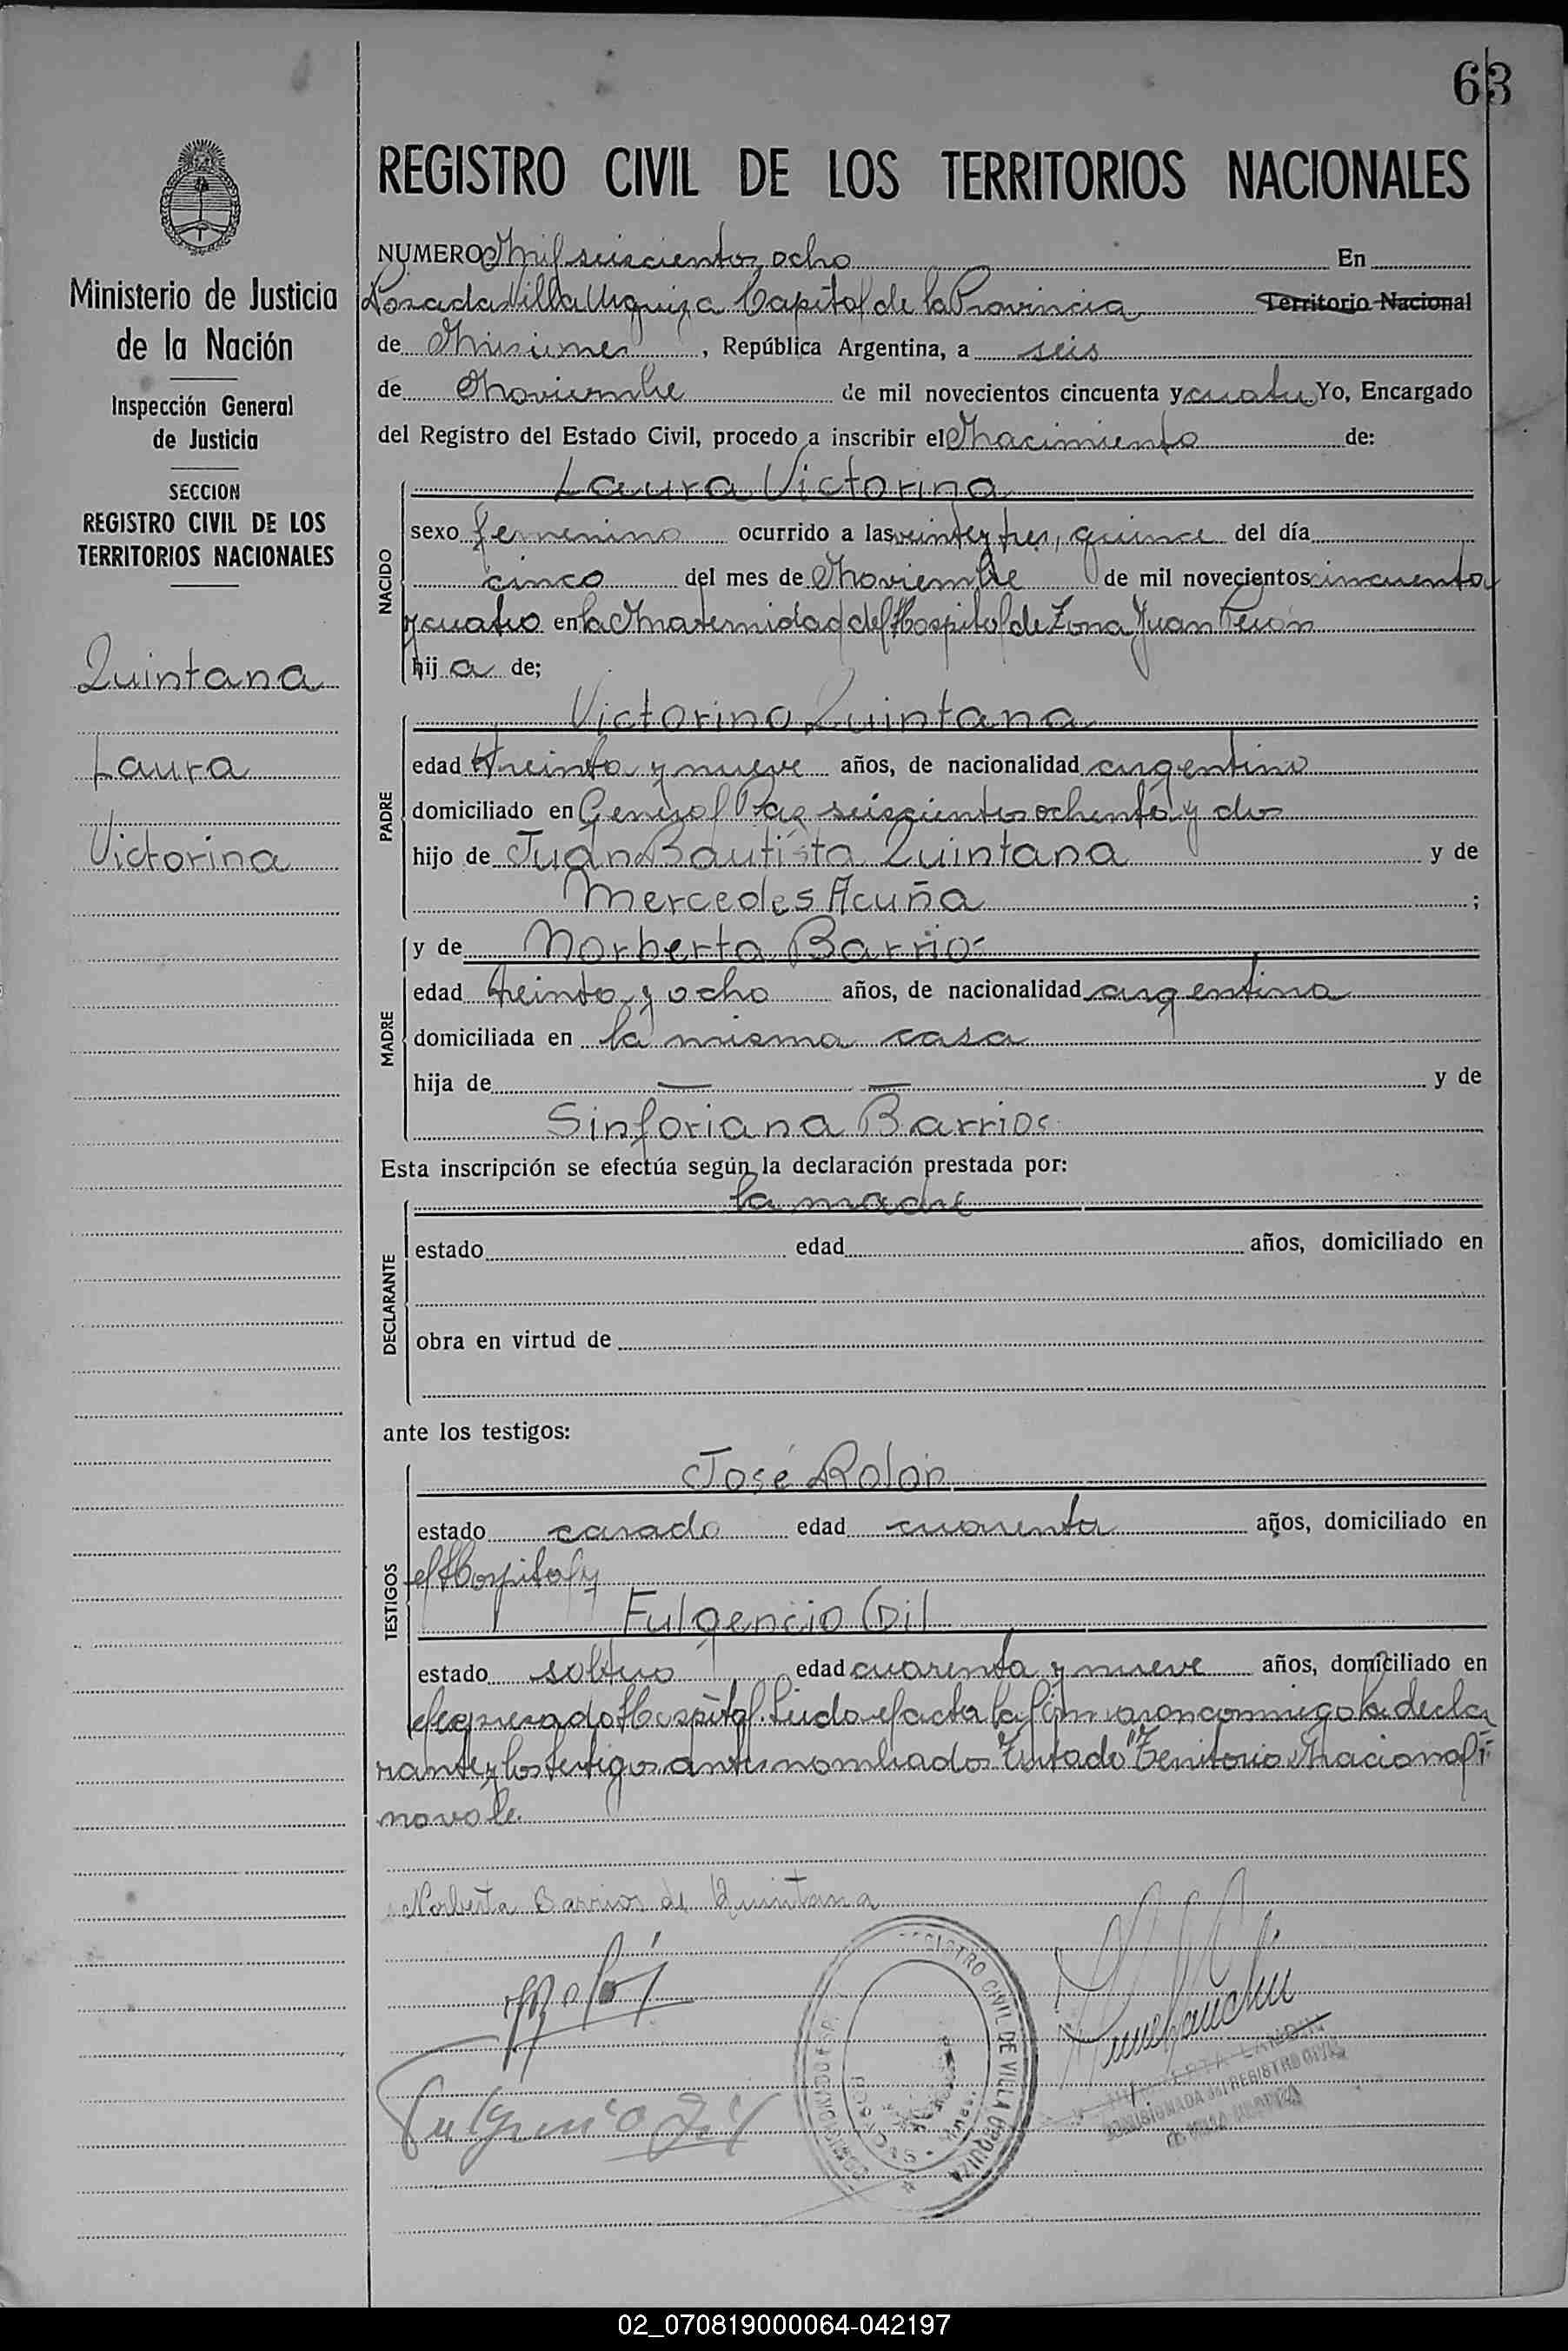 63
REGISTRO CIVIL DE LOS TERRITORIOS NACIONALES
Ministerio de Justicia
de la Nación
Inspección General
de Justicia
SECCION
REGISTRO CIVIL DE LOS
TERRITORIOS NACIONALES
Quintana
Laura
Victorina
NUMERO Mil seiscientos ocho En
Posadas Villa Urquiza Capital de la Provincia Territorio Nacional
de Misiones, República Argentina, a seis
de Noviembre de mil novecientos cincuenta y cuatro Yo, Encargado
del Registro del Estado Civil, procedo a inscribir el Nacimiento de:
NACIDO
Laura Victorina
sexo femenino ocurrido a las veinte y tres, quince del día
cinco del mes de Noviembre de mil novecientos cincuenta
y cuatro en la Maternidad del Hospital de Zona Juan Perón
hija de;
PADRE
Victorino Quintana
edad treinta y nueve años, de nacionalidad argentino
domiciliado en General Paz seiscientos ochenta y dos
hijo de Juan Bautista Quintana y de
Mercedes Acuña ;
MADRE
y de Norberta Barrios
edad treinta y ocho años, de nacionalidad argentina
domiciliada en la misma casa
hija de — — y de
Sinforiana Barrios
Esta inscripción se efectúa según la declaración prestada por:
DECLARANTE
la madre
estado edad años, domiciliado en
obra en virtud de
ante los testigos:
TESTIGOS
José Rolón
estado casado edad cuarenta años, domiciliado en
el Hospital y
Fulgencio Gil
estado soltero edad cuarenta y nueve años, domiciliado en
el expresado Hospital. Leida el acta la firmaron conmigo la decla
rante y los testigos antes nombrados. Testado "Territorio Nacional":
no vale.
Norberta Barrios de Quintana
Fulgencio Gil
REGISTRO CIVIL DE VILLA URQUIZA
COMISIONADA DEL REGISTRO CIVIL
DE VILLA URQUIZA
02_070819000064-042197